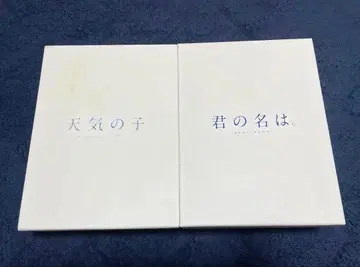 天気の子
君の名は。